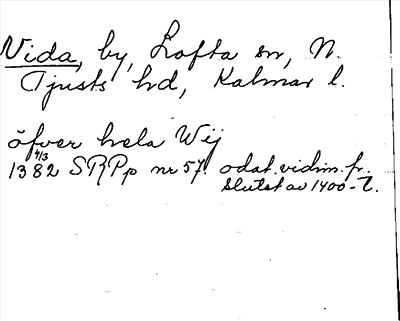 Vida, by, Lofta sn, N.
Tjusts hd, Kalmar l.
öfver hela Wij
1382 4/3 SRPp nr 57. odat. vidim. fr.
slutet av 1400-t.